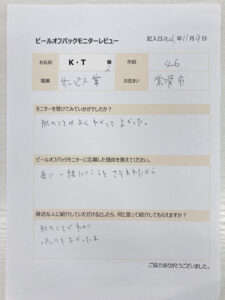 ピールオフパックモニターレビュー
記入日2021年11月9日
お名前 K・T 様 年齢 46
職業 サービス業 お住まい 常滑市
モニターを受けてみていかがでしたか？
肌のことがよくわかってよかった。
ピールオフパックモニターに応募した理由を教えてください。
一緒にいこうとさそわれたから
身近な人に紹介していただけるとしたら、何と言って紹介してもらえますか？
肌のことがわかり
よかったよ
ご協力ありがとうございました。